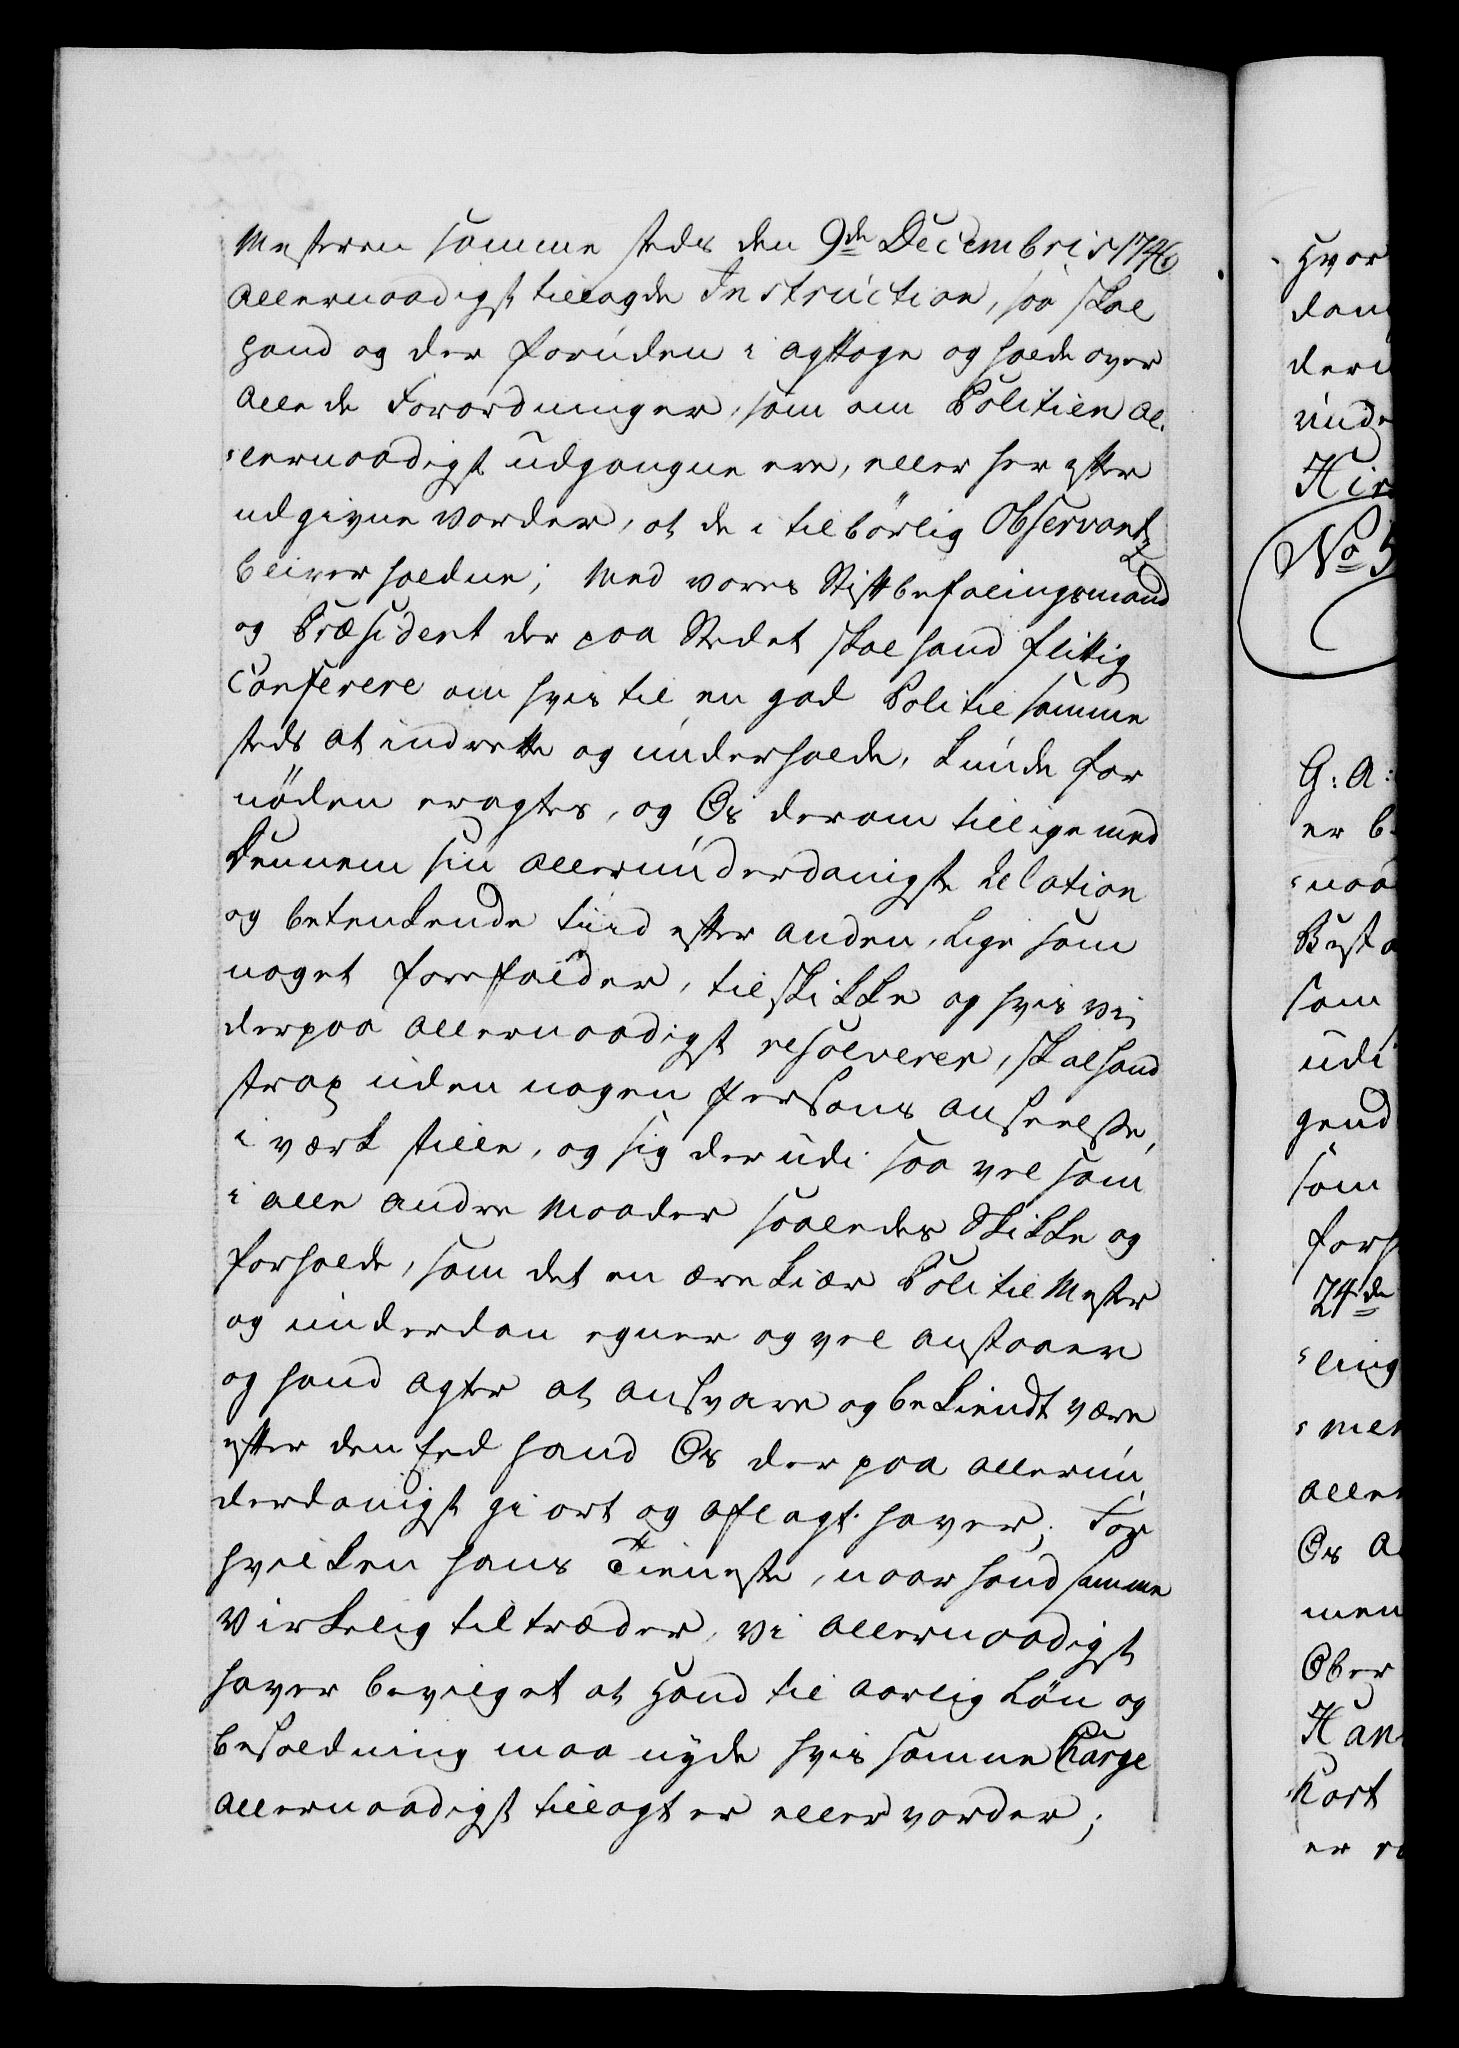 Mesteren samme steds den 9de Decembris 1746
allernaadigst tillagde Instruction, saa skal
Hand og der foruden i agttage og holde over
alle de Forordninger, som om Politien al,
lernaadigst udgangne ere, eller her efter
udgivne vorder, at de i tilbörlig Observantz
bliver holdne; Med vores Stiftbefalingsmand
og Præsident der paa Stedet skal hand flittig
Conferere om hvis til en god Politie samme
steds at indrette og underholde, kunde for
nöden eragtes, og Os derom tillige med
Dennem sin allerunderdanigste Relation
og betenkende tiid efter anden, lige som
noget forefalder, tilskikke og hvis vi
derpaa allernaadigst resolverer, skal hand
strax uden nogen Persons anseelse,
i værk stille, og sig der udi saa vel som
i alle andre Maader saaledes Skikke og
forholde, som det en ærekiær Politie Mester
og underdan egner og vel anstaaer
og hand agter at ansvare og bekiendt være
efter den Eed hand Os der paa allerun,
derdanigst giort og aflagt haver; For
hvilken hans Tieneste, naar hand samme
Virkelig tiltræder, Vi allernaadigst
haver bevilget at Hand til aarlig Lön og
besoldning maa nyde hvis samme Charge
allernaadigst tillagt er eller vorder;
Hvor
der
unde
No 5
G: A:
er b
naa
som
udi
gend
som
forh
24de
ling
mer
aller
Os a
men
Ober
Kan
kort
er